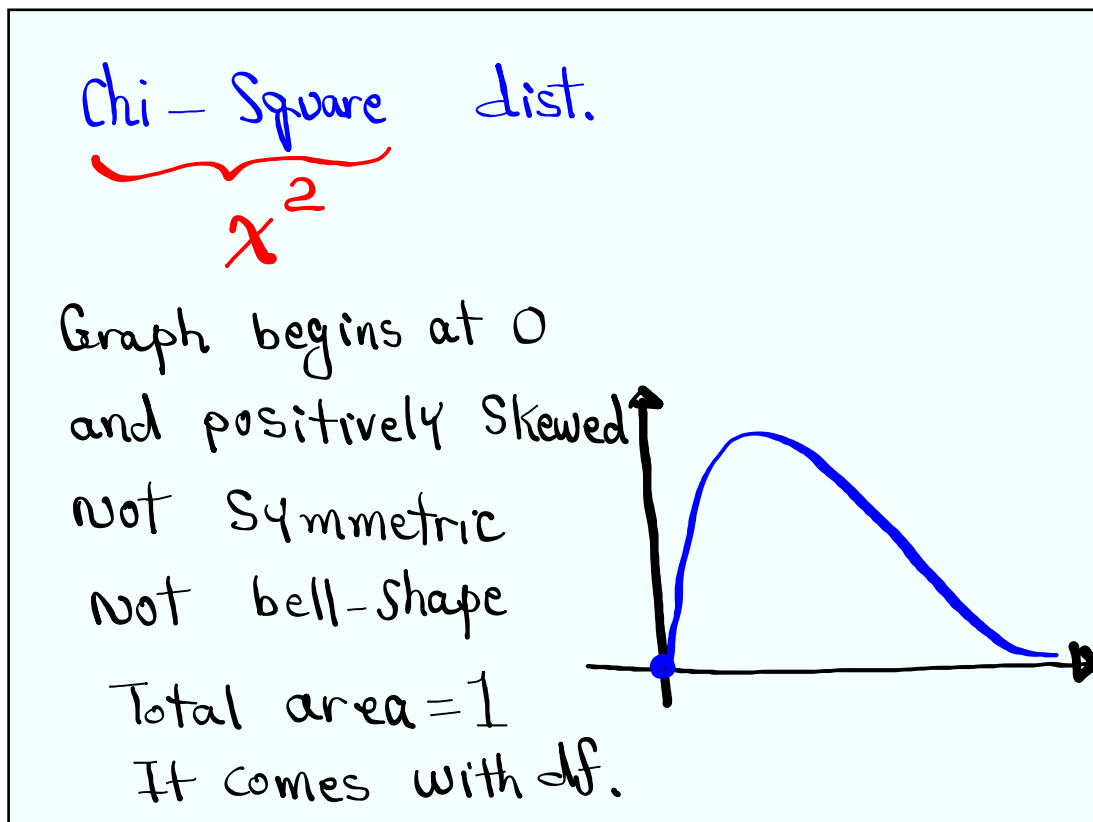 Chi - Square dist.
χ²
Graph begins at 0
and positively Skewed
Not Symmetric
Not bell-shape
Total area = 1
It comes with df.